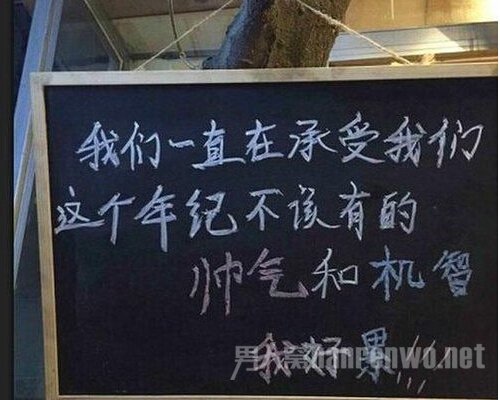 我们一直在承受我们
这个年纪不该有的
帅气和机智
我好累!!!
nanrenwo.net